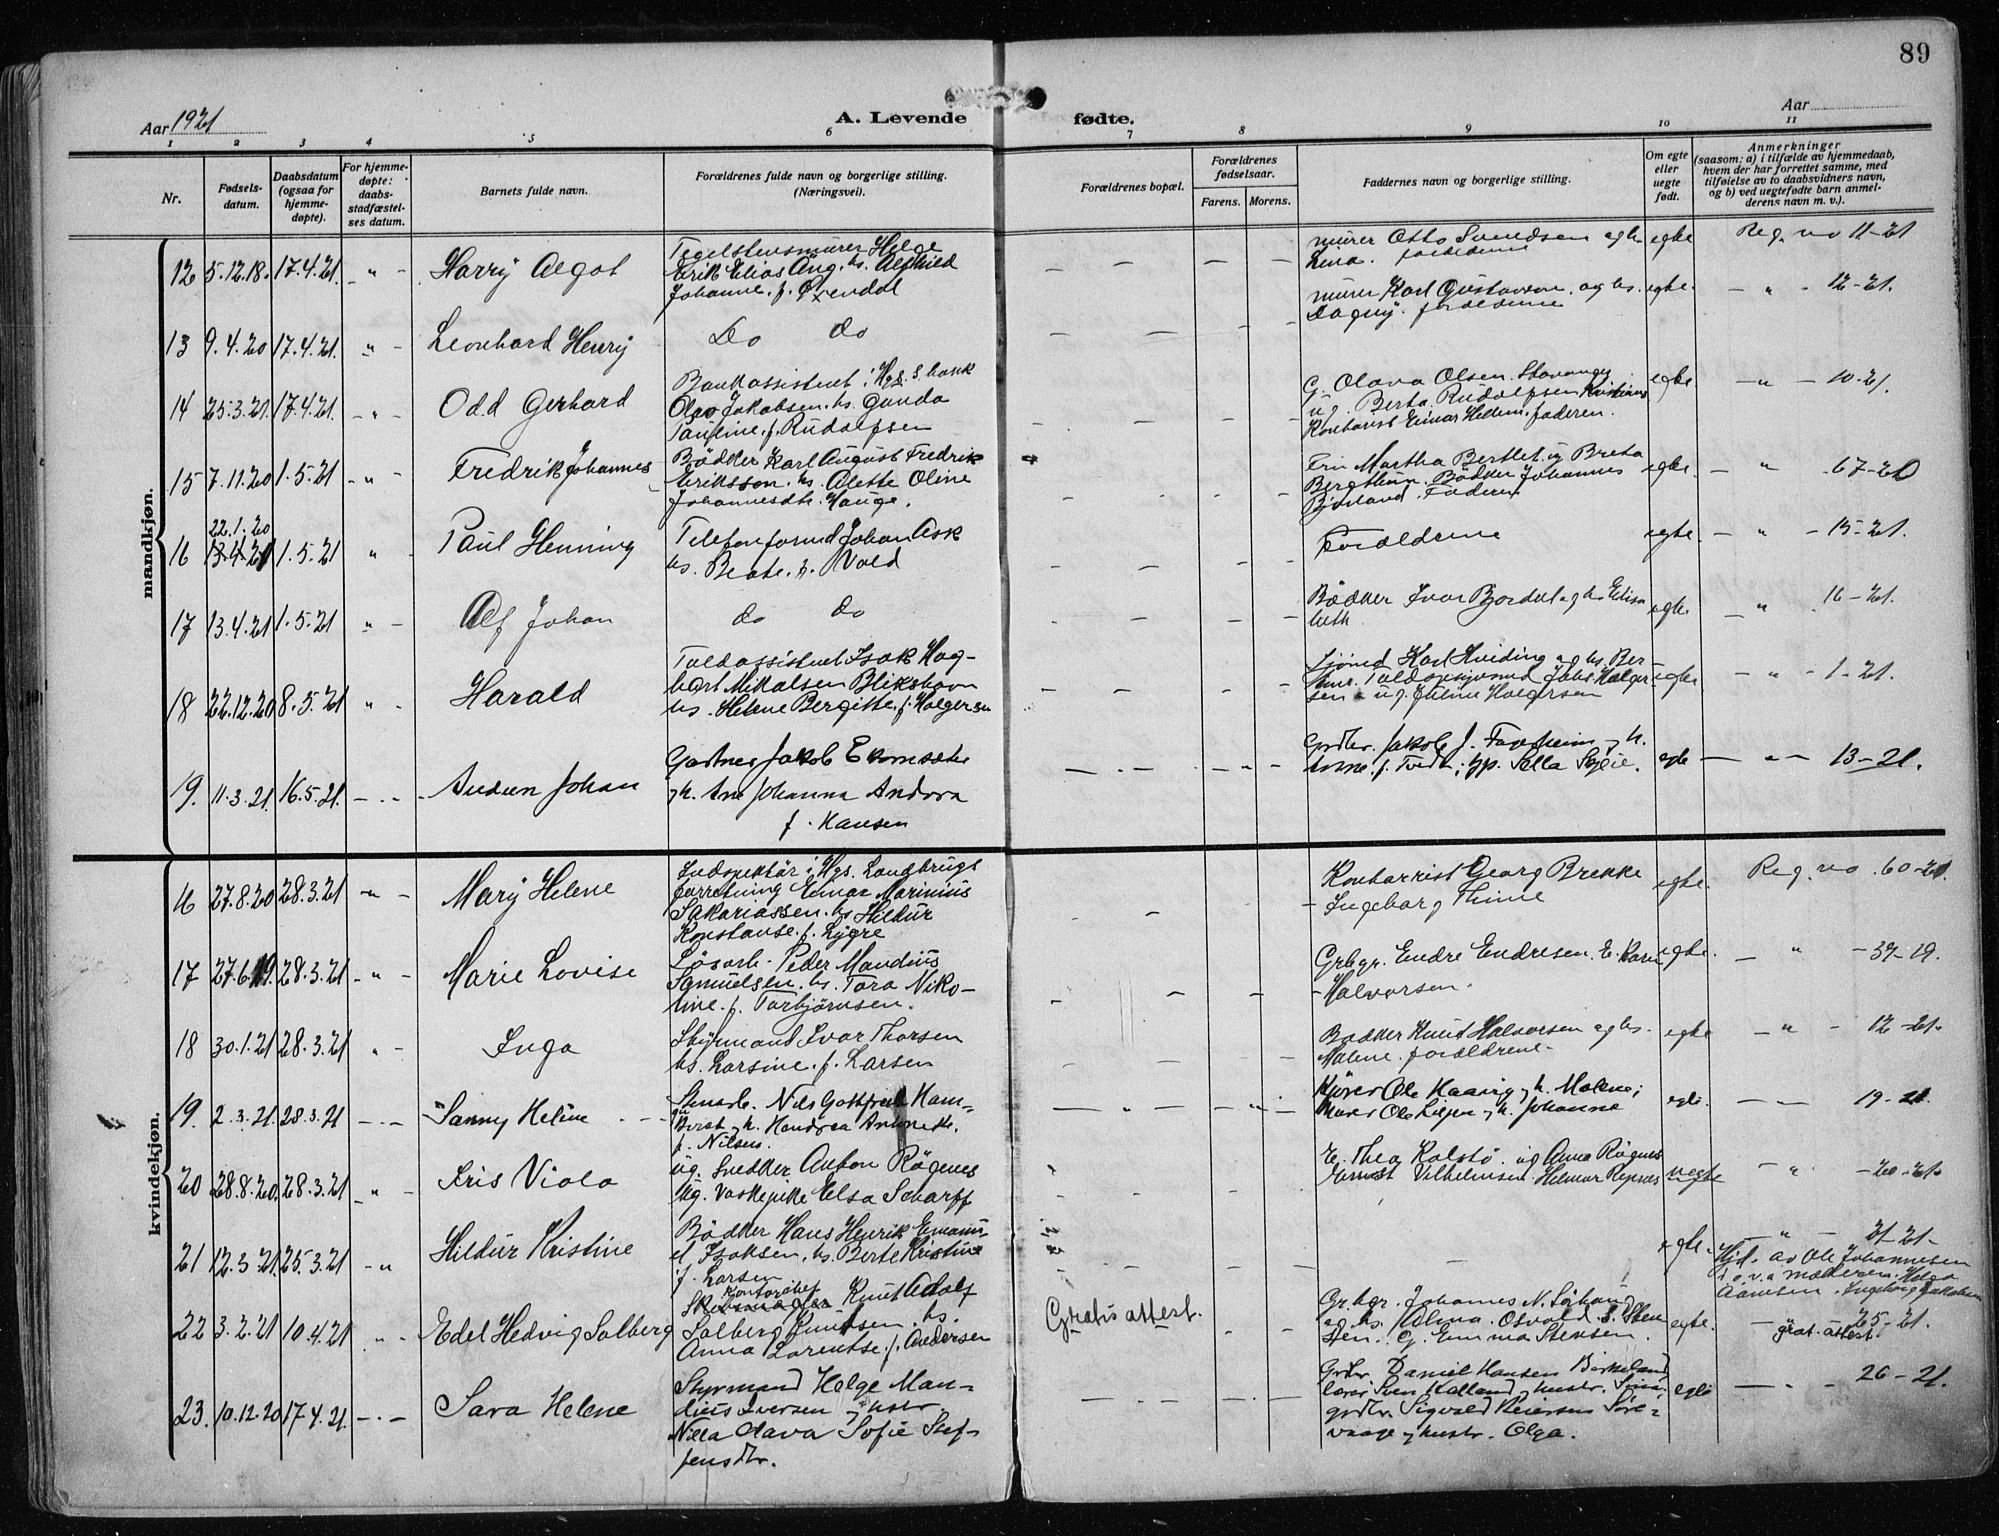 89
Aar 1921
A. Levende fødte.
Aar
1 2 3 4 5 6 7 8 9 10 11
Nr.
Fødsels-
datum.
Daabsdatum
(ogsaa for
hjemme-
døpte).
For hjemme-
døpte:
daabs-
stadfæstel-
ses datum.
Barnets fulde navn.
Forældrenes fulde navn og borgerlige stilling.
(Næringsvei).
Forældrenes bopæl.
Forældrenes
fødselsaar.
Farens. Morens.
Faddernes navn og borgerlige stilling.
Om egte
eller
uegte
født.
Anmerkninger
(saasom: a) i tilfælde av hjemmedaab,
hvem der har forrettet samme, med
tilføielse av to daabsvidners navn,
og b) ved uegtefødte barn anmel-
derens navn m. v.).
mandkjøn.
12 5.12.18. 17.4.21. " - Harry Algot
Tegelstensmurer Helge
Erik Elias Aug. hs. Alfhild
Johanne f.
murer Otto Svendsen og hs.
Lina. forældrene
egte Reg. no 11-21
13 9.4.20 17.4.21. " - Leonhard Henry
Do do
murer Karl Gustavson og hs.
Dagny. forældrene
egte. - " - 12-21.
14 25.3.21. 17.4.21. - " - Odd Gerhard
Bankassistent i Hgs. S. bank
Olav Jakobsen. hs. Gunda
Pauline. f. Rudolfsen
G. Olava Olsen. Stavanger
ug. Berta Rudolfsen
Kontorist Einar Hellem. faderen.
egte - " - 10-21.
15 7.11.20 1.5.21 - " - Fredrik Johannes
Bødker Karl August Fredrik
Eriksson. hs. Alette Oline
Johannesdtr. Hauge.
Fru Martha Bertlet. og Breta
Bødker Johannes
Faderen
egte. - " - 67-20
22.1.20
16 13.4.21 1.5.21 " Paul Henning
Telefonformd Johan Ask
hs. Beate. f. Vold
Forældrene
egte. - " - 15-21.
17 13.4.21 1.5.21 " - Alf Johan
do do
Bødker Ivar Bjordal og hs. Elisa
beth.
egte. " . 16-21.
18 22.12.20 8.5.21 " - Harald
Toldassistent Isak Hag-
bart Mikalsen Blikshavn
hs. Helene Bergitte. f. Holgersen
Sjømd Karl Hviding og hs. Ber-
Holger-
sen. ug. Holgersen
egte - " - 1-21.
19. 11.3.21. 16.5.21. - " - Audun Johan
Gartner Jakob
h. Ane Johanna Andora
f. Hansen
Grdbr. Jakob J.
egte - " - 13-21.
kvindekjøn.
16 27.8.20 28.3.21 - " - Mary Helene
Inspektør i Hgs. Landbrugs
forretning Einar Marinius
Sakariassen. hs Hildur
Konstanse. f. Lygre
Kontorist Georg Brekke
- Ingeborg Thime
egte. Reg. no . 60-20.
17 27.6.19. 28.3.21 - " - Marie Lovise
Løsarb. Peder Mandius
Samuelsen. hs. Tora Niko-
line. f. Torbjørnsen.
Grbgr. Endre Endresen. E. Karen
- Halvorsen.
egte. - " - 39-19.
18 30.1.21 28.3.21 " - Inga
Skymand Ivar Thorsen
hs. Larsine. f. Larsen
Bødker Knut Halvorsen og hs.
Malene. forældrene.
egte - " - 12-21.
19. 2.3.21. 28.3.21 - " - Sanny Heline
Nils Gottfred
h. Andrea
f. Nilsen.
Kjører Ole h. Malene;
Ole h. Johanne
egte. - - 19-21.
20 28.8.20. 28.3.21 " - Iris Viola
ug. Snedker Anton Røgenes
Ug. Vaskepike Elsa Scharff
E. Thea Kalstø. og Anna Røgnes
Vilhelmsen. Helmar
uegte - " - 20-21.
21 12.3.21. 25.3.21 - " Hildur Kristine
Bødker Hans Henrik Emanu-
el Isaksen. hs. Berte Kristine
f. Larsen
egte. - " - 21-21-
Hjd. av Ole Johannesen
Aamsen. Ingeborg Jakobsen
22 3.2.21 10.4.21 " - Edel Hedvig Solberg
Kontorchef
Knut Adolf
Solberg Knutsen. hs.
Anna Lorentse. f. Andersen
Gratis attest.
Gr.bgr. Johannes N.
og hs. Osvald S. Sten-
sen. G. Emma Stensen.
egte. - 25-21.
grat. attest
23. 10.12.20 17.4.21. - " - Sara Helene
Styrmand Helge Man-
dius Iversen
Nilla Olava Sofie Stef-
fensdtr.
Grdbr. Daniel Hansen Birkeland
Lærer Sven
grdbr. Sigvald
hustr. Olga.
egte - " - 26-21.